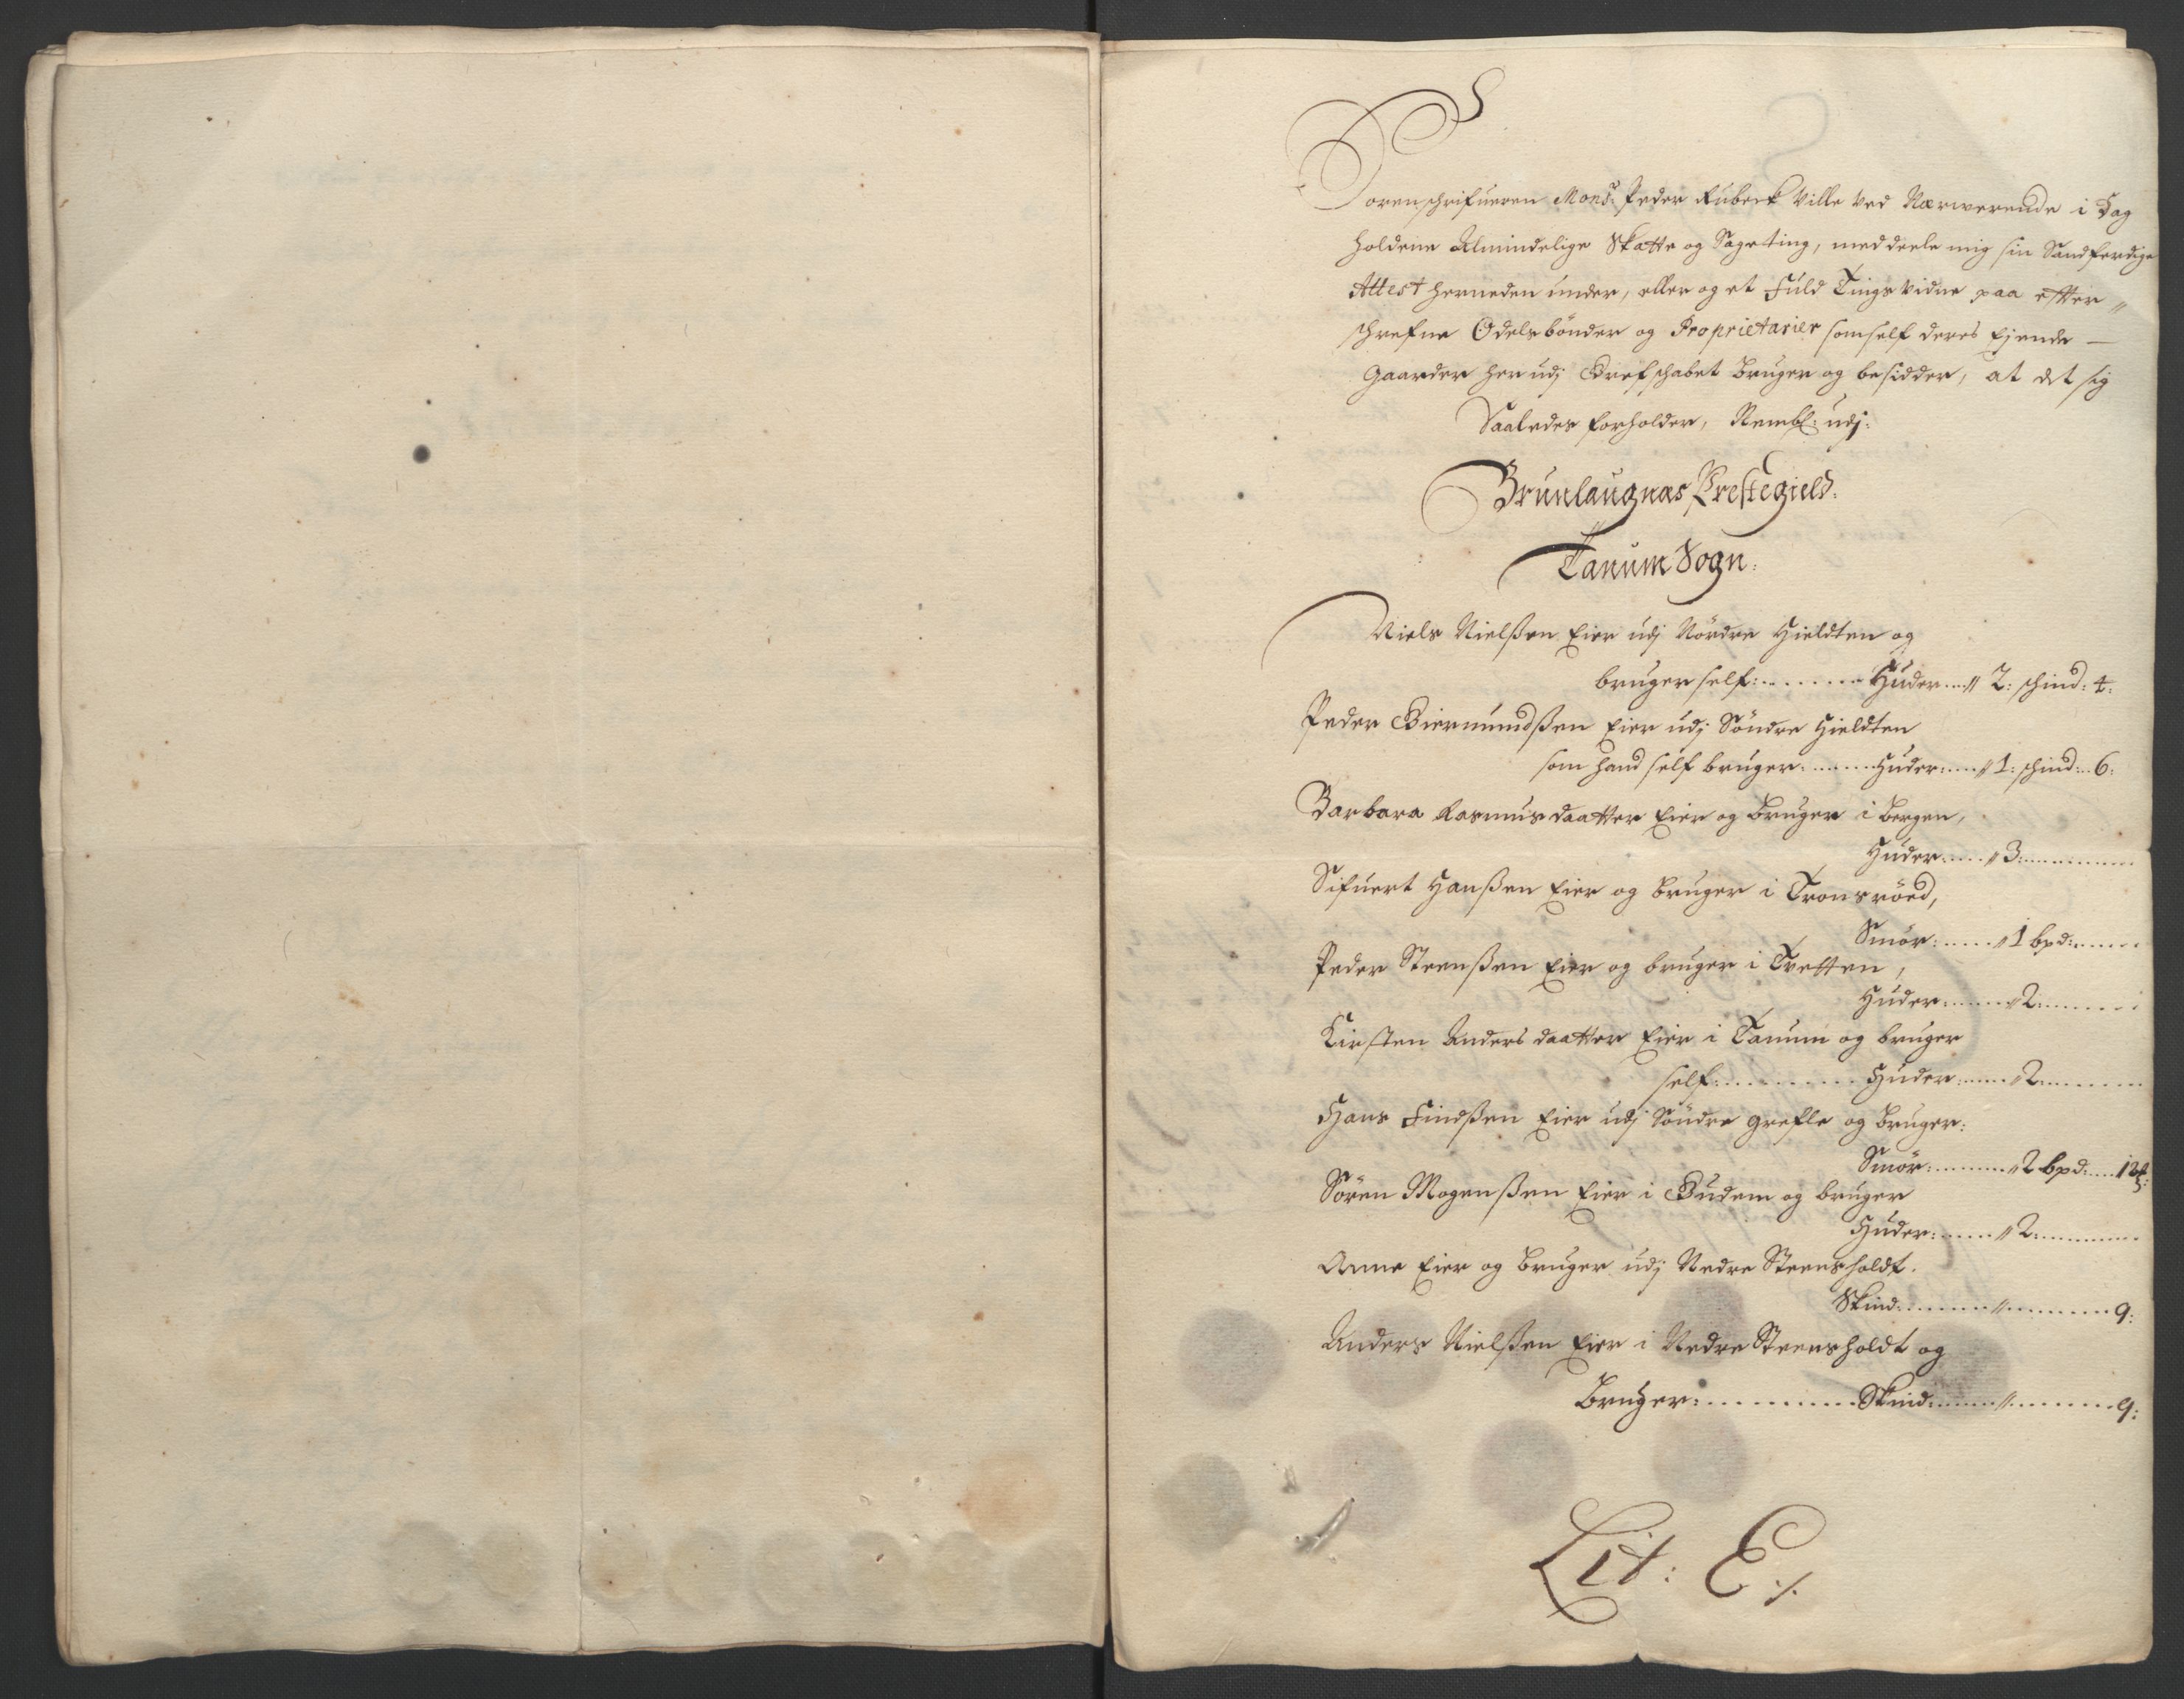 Sorenschrifueren Mons: Peder Rubeck Ville ved Nærwerende i Dag
holdene Almindelige Skatte og Sageting, meddeele mig sin Sandferdige
Attest herneden under, eller og et Fuld Tings vidne paa effter
schrefne Odelsbönder og Proprietarier som self deres Ejende —
Gaarder her udj Grefschabet bruger og besidder, at det sig
Saaledes forholder, Nembl: udj:
Brunlaugnæs Prestegield.
Tanum Sogn.
Niels Nielßen Eier udj Nördre Hieldten og
bruger self: Huder 2: schind: 4:
Peder Giermundßen Eier udj Söndre Hieldten
som hand self bruger. Huder: 1: schind: 6:
Barbara Rasmusdaatter Eier og bruger i Bergen,
Huder 3:
Sifuert Hanßen Eier og bruger i Tronsröed,
Smör: 1 bpd:
Peder Steenßen Eier og bruger i Tvetten,
Huder: 2:
Kirsten Andersdaatter Eier i Tanum og bruger
self: Huder: 2:
Hans Findßen Eier udj Söndre Grefle og bruger:
Smör: 2 bpd: 12
Sören Mogenßen Eier i Gudem og bruger
Huder: 2:
Anne Eier og bruger udj Nedre Steensholdt.
Skind: 9:
Anders Nielßen Eier i Nedre Steensholdt og
Bruger: Skind: 9:
Lit: E ./.